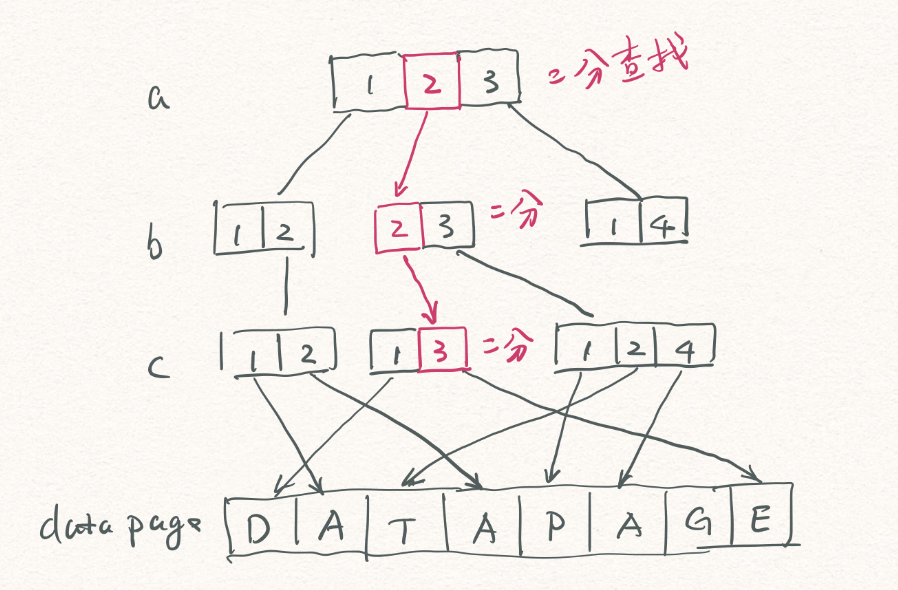 a 1 2 3 二分查找
b 1 2 2 3 二分 1 4
c 1 2 1 3 二分 1 2 4
data page D A T A P A G E